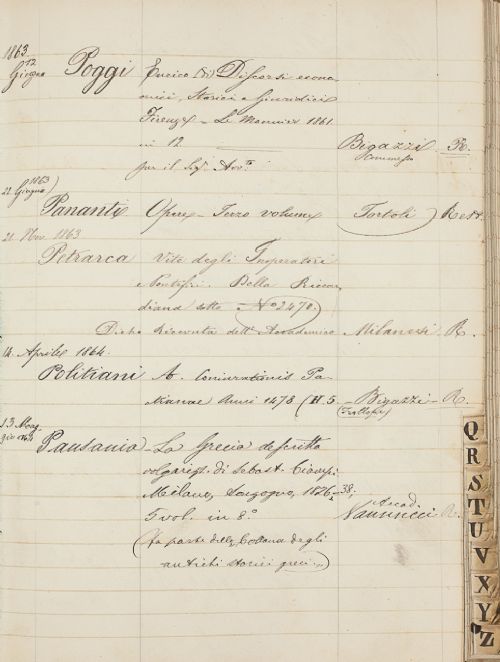 1863
12
Giugno Poggi Enrico (Di) Discorsi econo-
mici, Storici e Giuridici
Firenze - Le Monnier 1861.
in 12 Bigazzi R.
per il Sigr Avvo
22 Giugno 1863)
Pananti Opere - Terzo volume Tortoli) Rest.
21. Nov. 1863
Petrarca Vite degli Imperatori
e Pontefici. Della Riccar-
diana sotto - No 2470.
Dicho Ricevuta dell' Accademico Milanesi - R.
14. Aprile 1864.
Politiani A. Coniurationis Pa-
ctianae Anni 1478 (H. 5. - Bigazzi - R.
13. Mag-
gio 1864
Pausania - La Grecia descritta
volgarizz. di Sebast. Ciampi.
Milano, Sonzogno, 1826-38;
5 vol. in 8.° Accad. Vannucci R.
(fa parte della Collana degli
antichi storici greci.)
Q
R
S
T
U
V
X
Y
Z